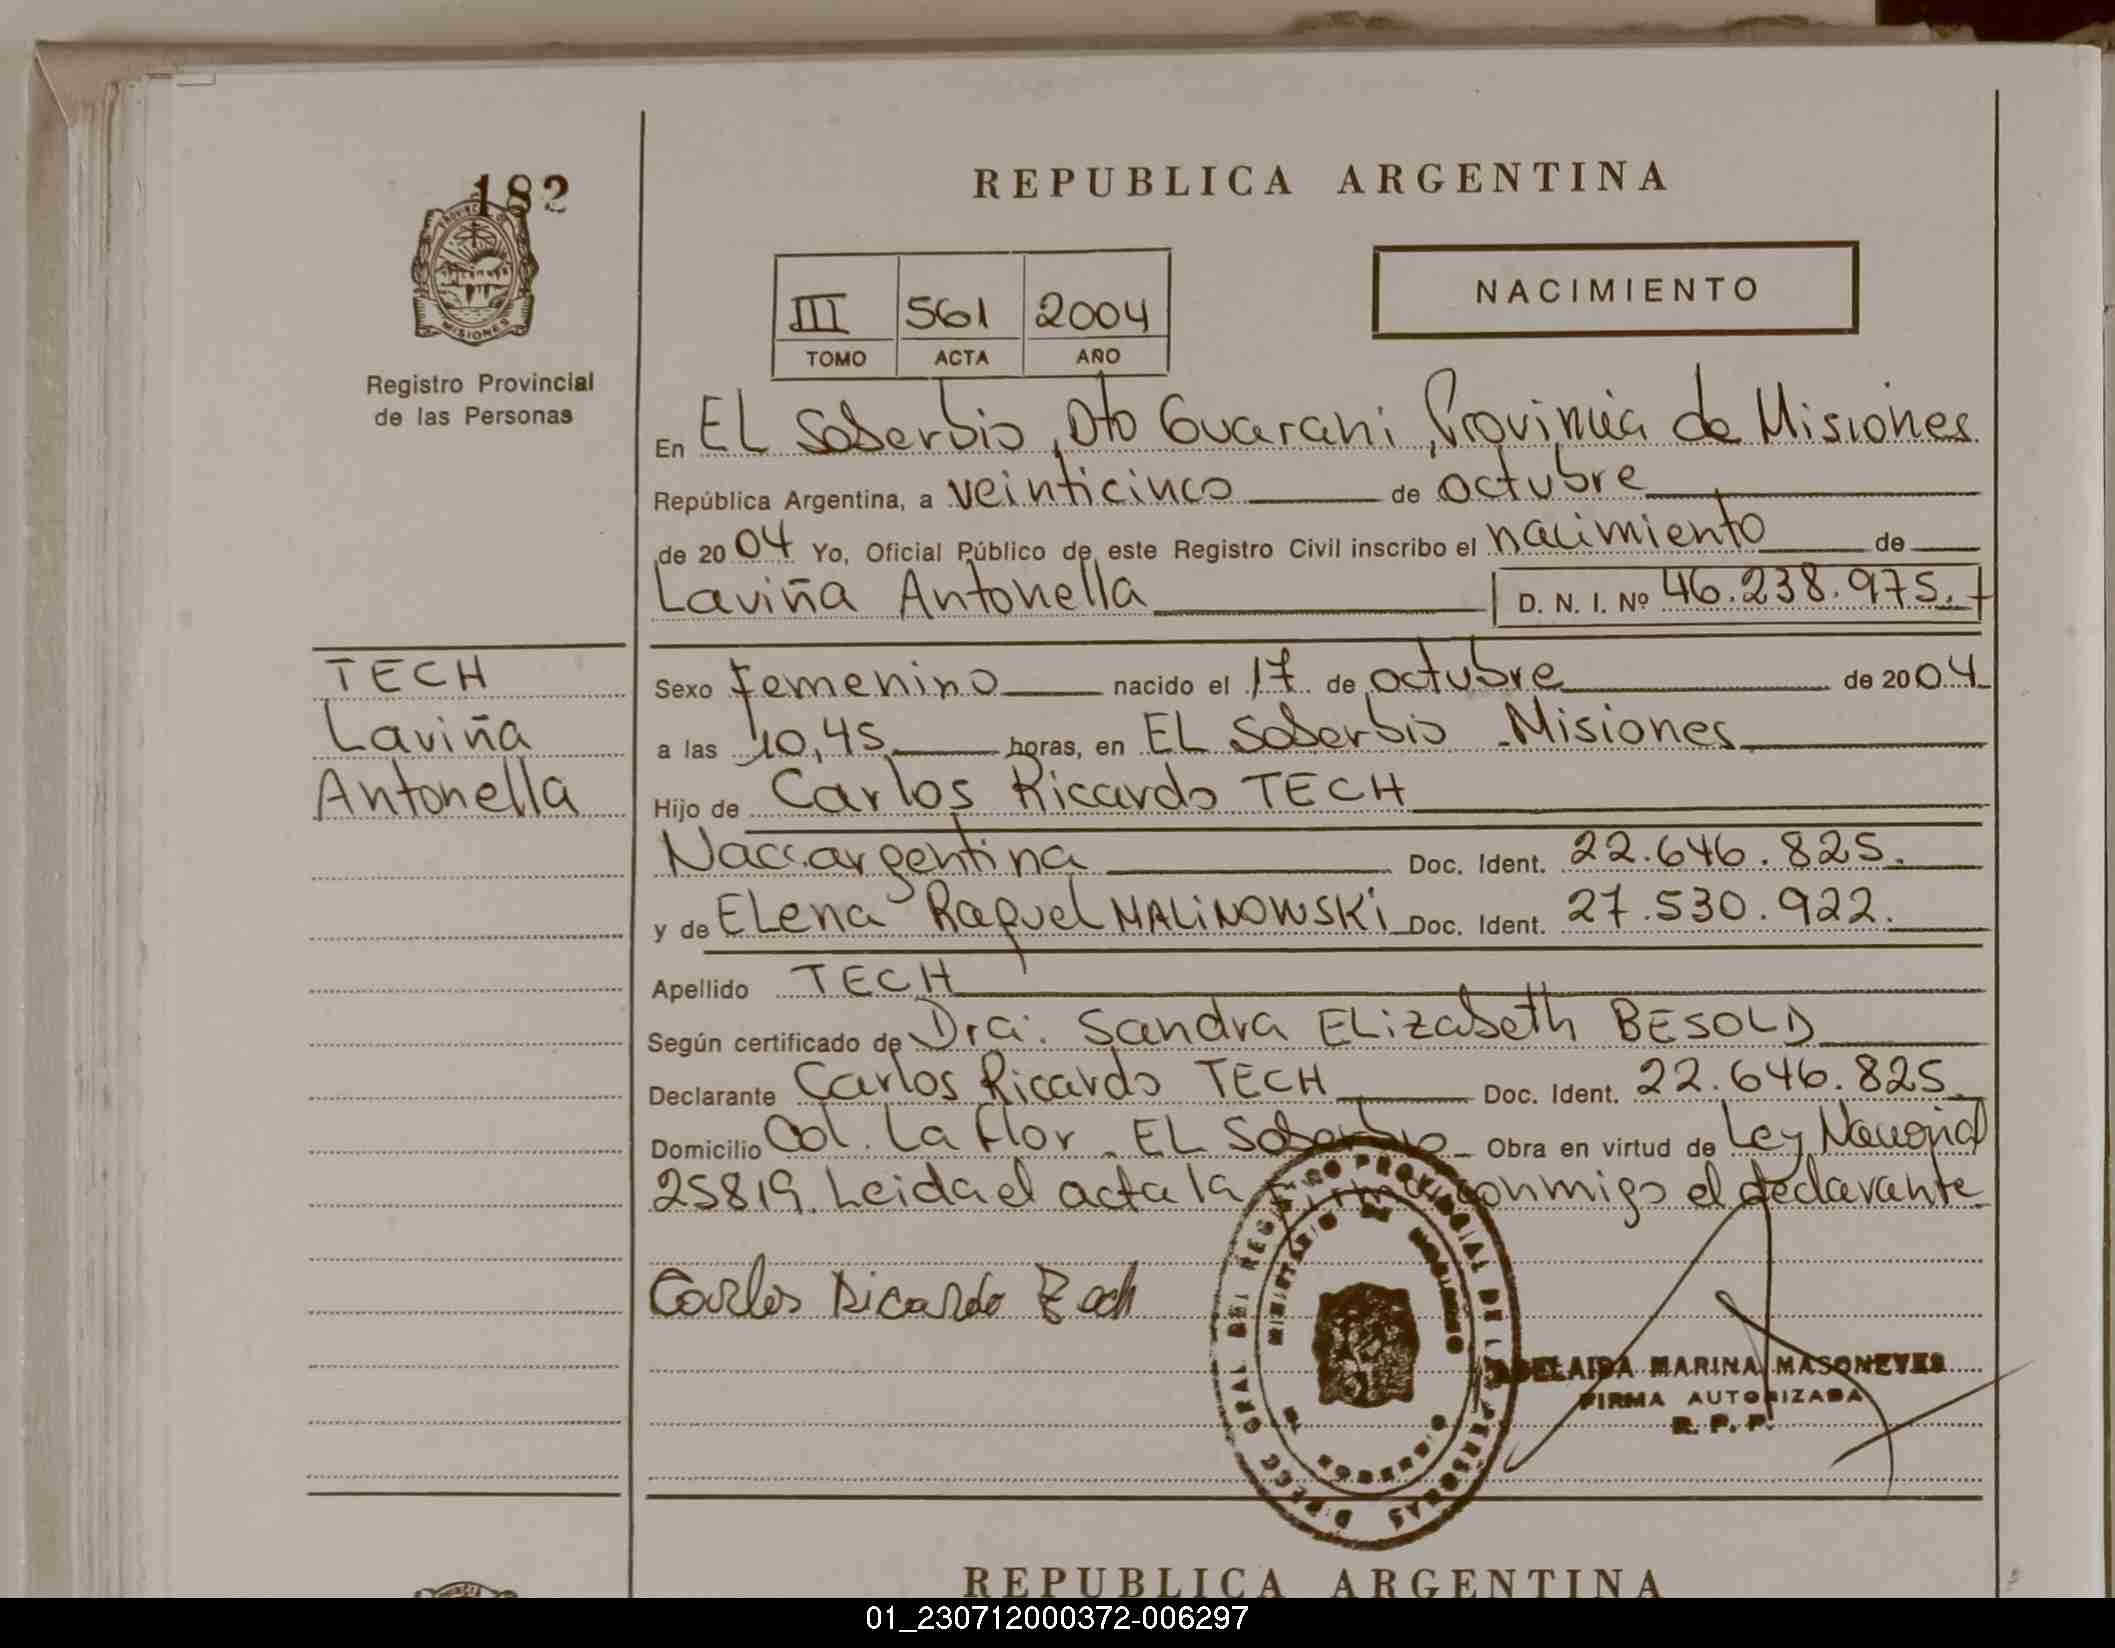 182
PROVINCIA DE
MISIONES
Registro Provincial
de las Personas
REPUBLICA ARGENTINA
III 561 2004
TOMO ACTA AÑO
NACIMIENTO
En EL Soberbio, Dto Guarani, Provincia de Misiones
República Argentina, a veinticinco de octubre
de 2004 Yo, Oficial Público de este Registro Civil inscribo el nacimiento de
Laviña Antonella D. N. I. Nº 46.238.975.
TECH
Laviña
Antonella
Sexo Femenino nacido el 17 de octubre de 2004
a las 10,45 horas, en EL Soberbio - Misiones
Hijo de Carlos Ricardo TECH
Nac. argentina Doc. Ident. 22.646.825.
y de ELena Raquel MALINOWSKI Doc. Ident. 27.530.922.
Apellido TECH
Según certificado de Dra: Sandra ELizabeth BESOLD
Declarante Carlos Ricardo TECH Doc. Ident. 22.646.825
Domicilio Col. La Flor - EL Soberbio Obra en virtud de Ley Nacional
25819. Leida el acta la firma conmigo el declarante
Carlos Ricardo Tech
DIREC. GRAL DEL REGISTRO PROVINCIAL DE LAS PERSONAS
MINISTERIO DE GOBIERNO
ADELAIDA MARINA MASONEVES
FIRMA AUTORIZADA
R. P. P.
REPUBLICA ARGENTINA
01_230712000372-006297